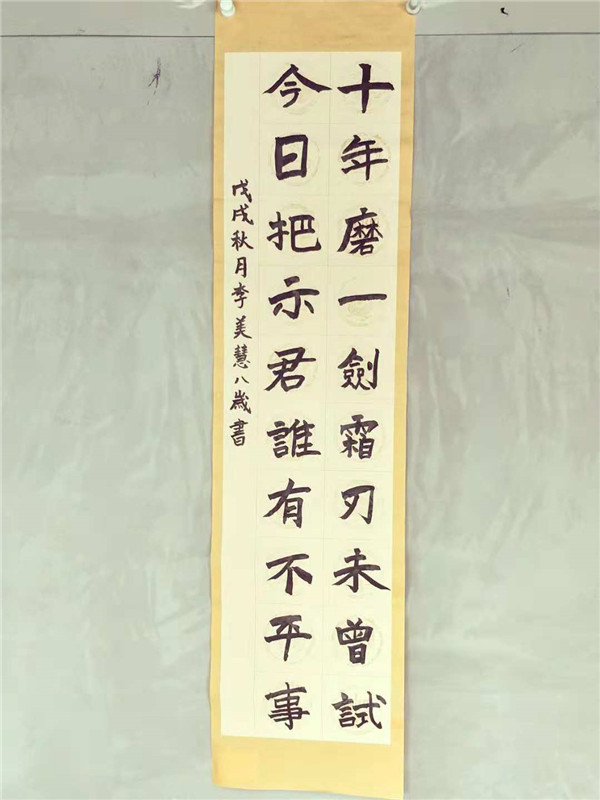 十年磨一劍霜刃未曾試
今日把示君誰有不平事
戊戌秋月李美慧八歲書